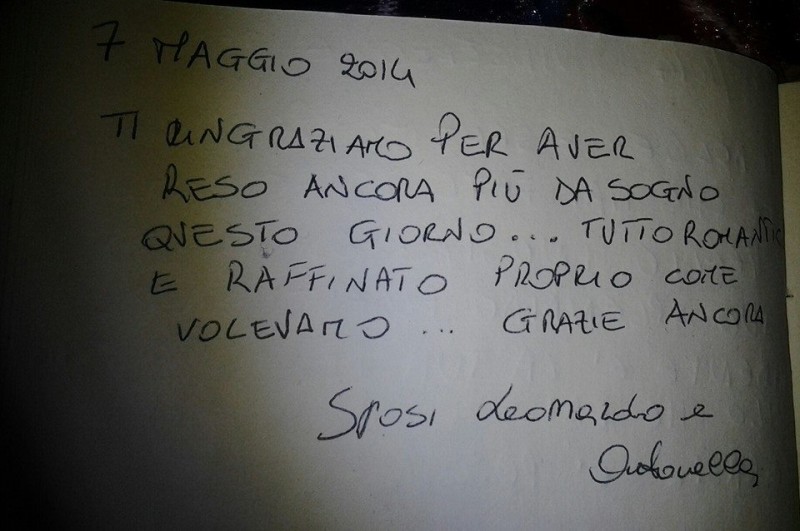 7 MAGGIO 2014
TI RINGRAZIAMO PER AVER
RESO ANCORA PIÙ DA SOGNO
QUESTO GIORNO... TUTTO ROMANTIC
E RAFFINATO PROPRIO COME
VOLEVAMO... GRAZIE ANCORA
Sposi Leonardo e
Antonella